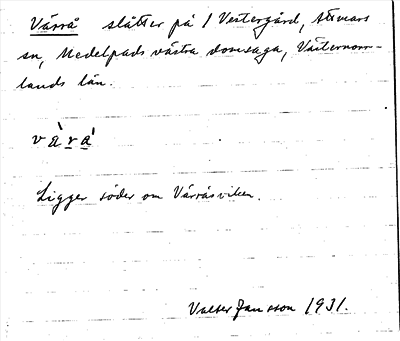 Värrå slåtter på 1 Vestergård, Attmars
sn, Medelpads västra domsaga, Västernorr-
lands län.
v à r å
Ligger söder om Värråsviken.
Valter Jansson 1931.